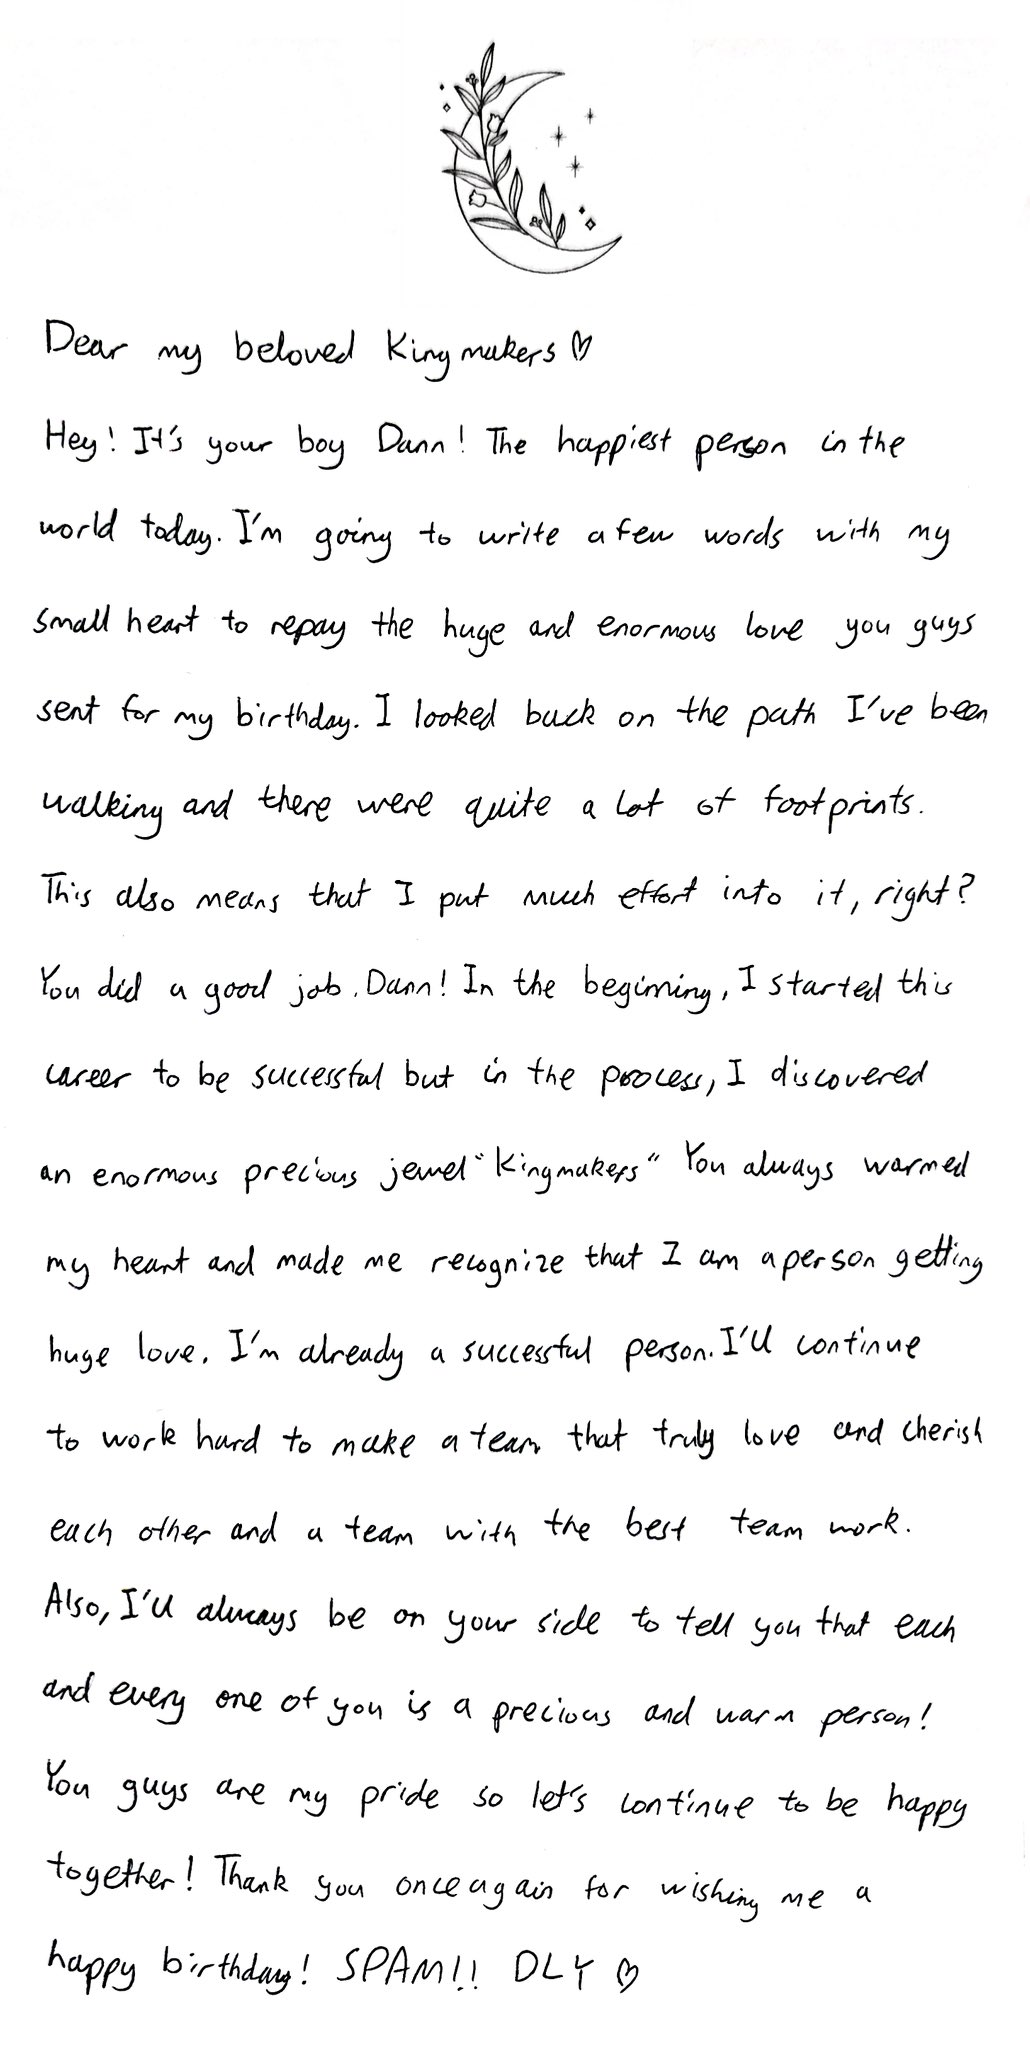 Dear my beloved Kingmakers ♡
Hey! It's your boy Dann! The happiest person in the
world today. I'm going to write a few words with my
small heart to repay the huge and enormous love you guys
sent for my birthday. I looked back on the path I've been
walking and there were quite a lot of footprints.
This also means that I put much effort into it, right?
You did a good job. Dann! In the beginning, I started this
career to be successful but in the process, I discovered
an enormous precious jewel "Kingmakers" You always warmed
my heart and made me recognize that I am a person getting
huge love. I'm already a successful person. I'll continue
to work hard to make a team that truly love and cherish
each other and a team with the best team work.
Also, I'll always be on your side to tell you that each
and every one of you is a precious and warm person!
You guys are my pride so let's continue to be happy
together! Thank you once again for wishing me a
happy birthday! SPAM!! DLY ♡